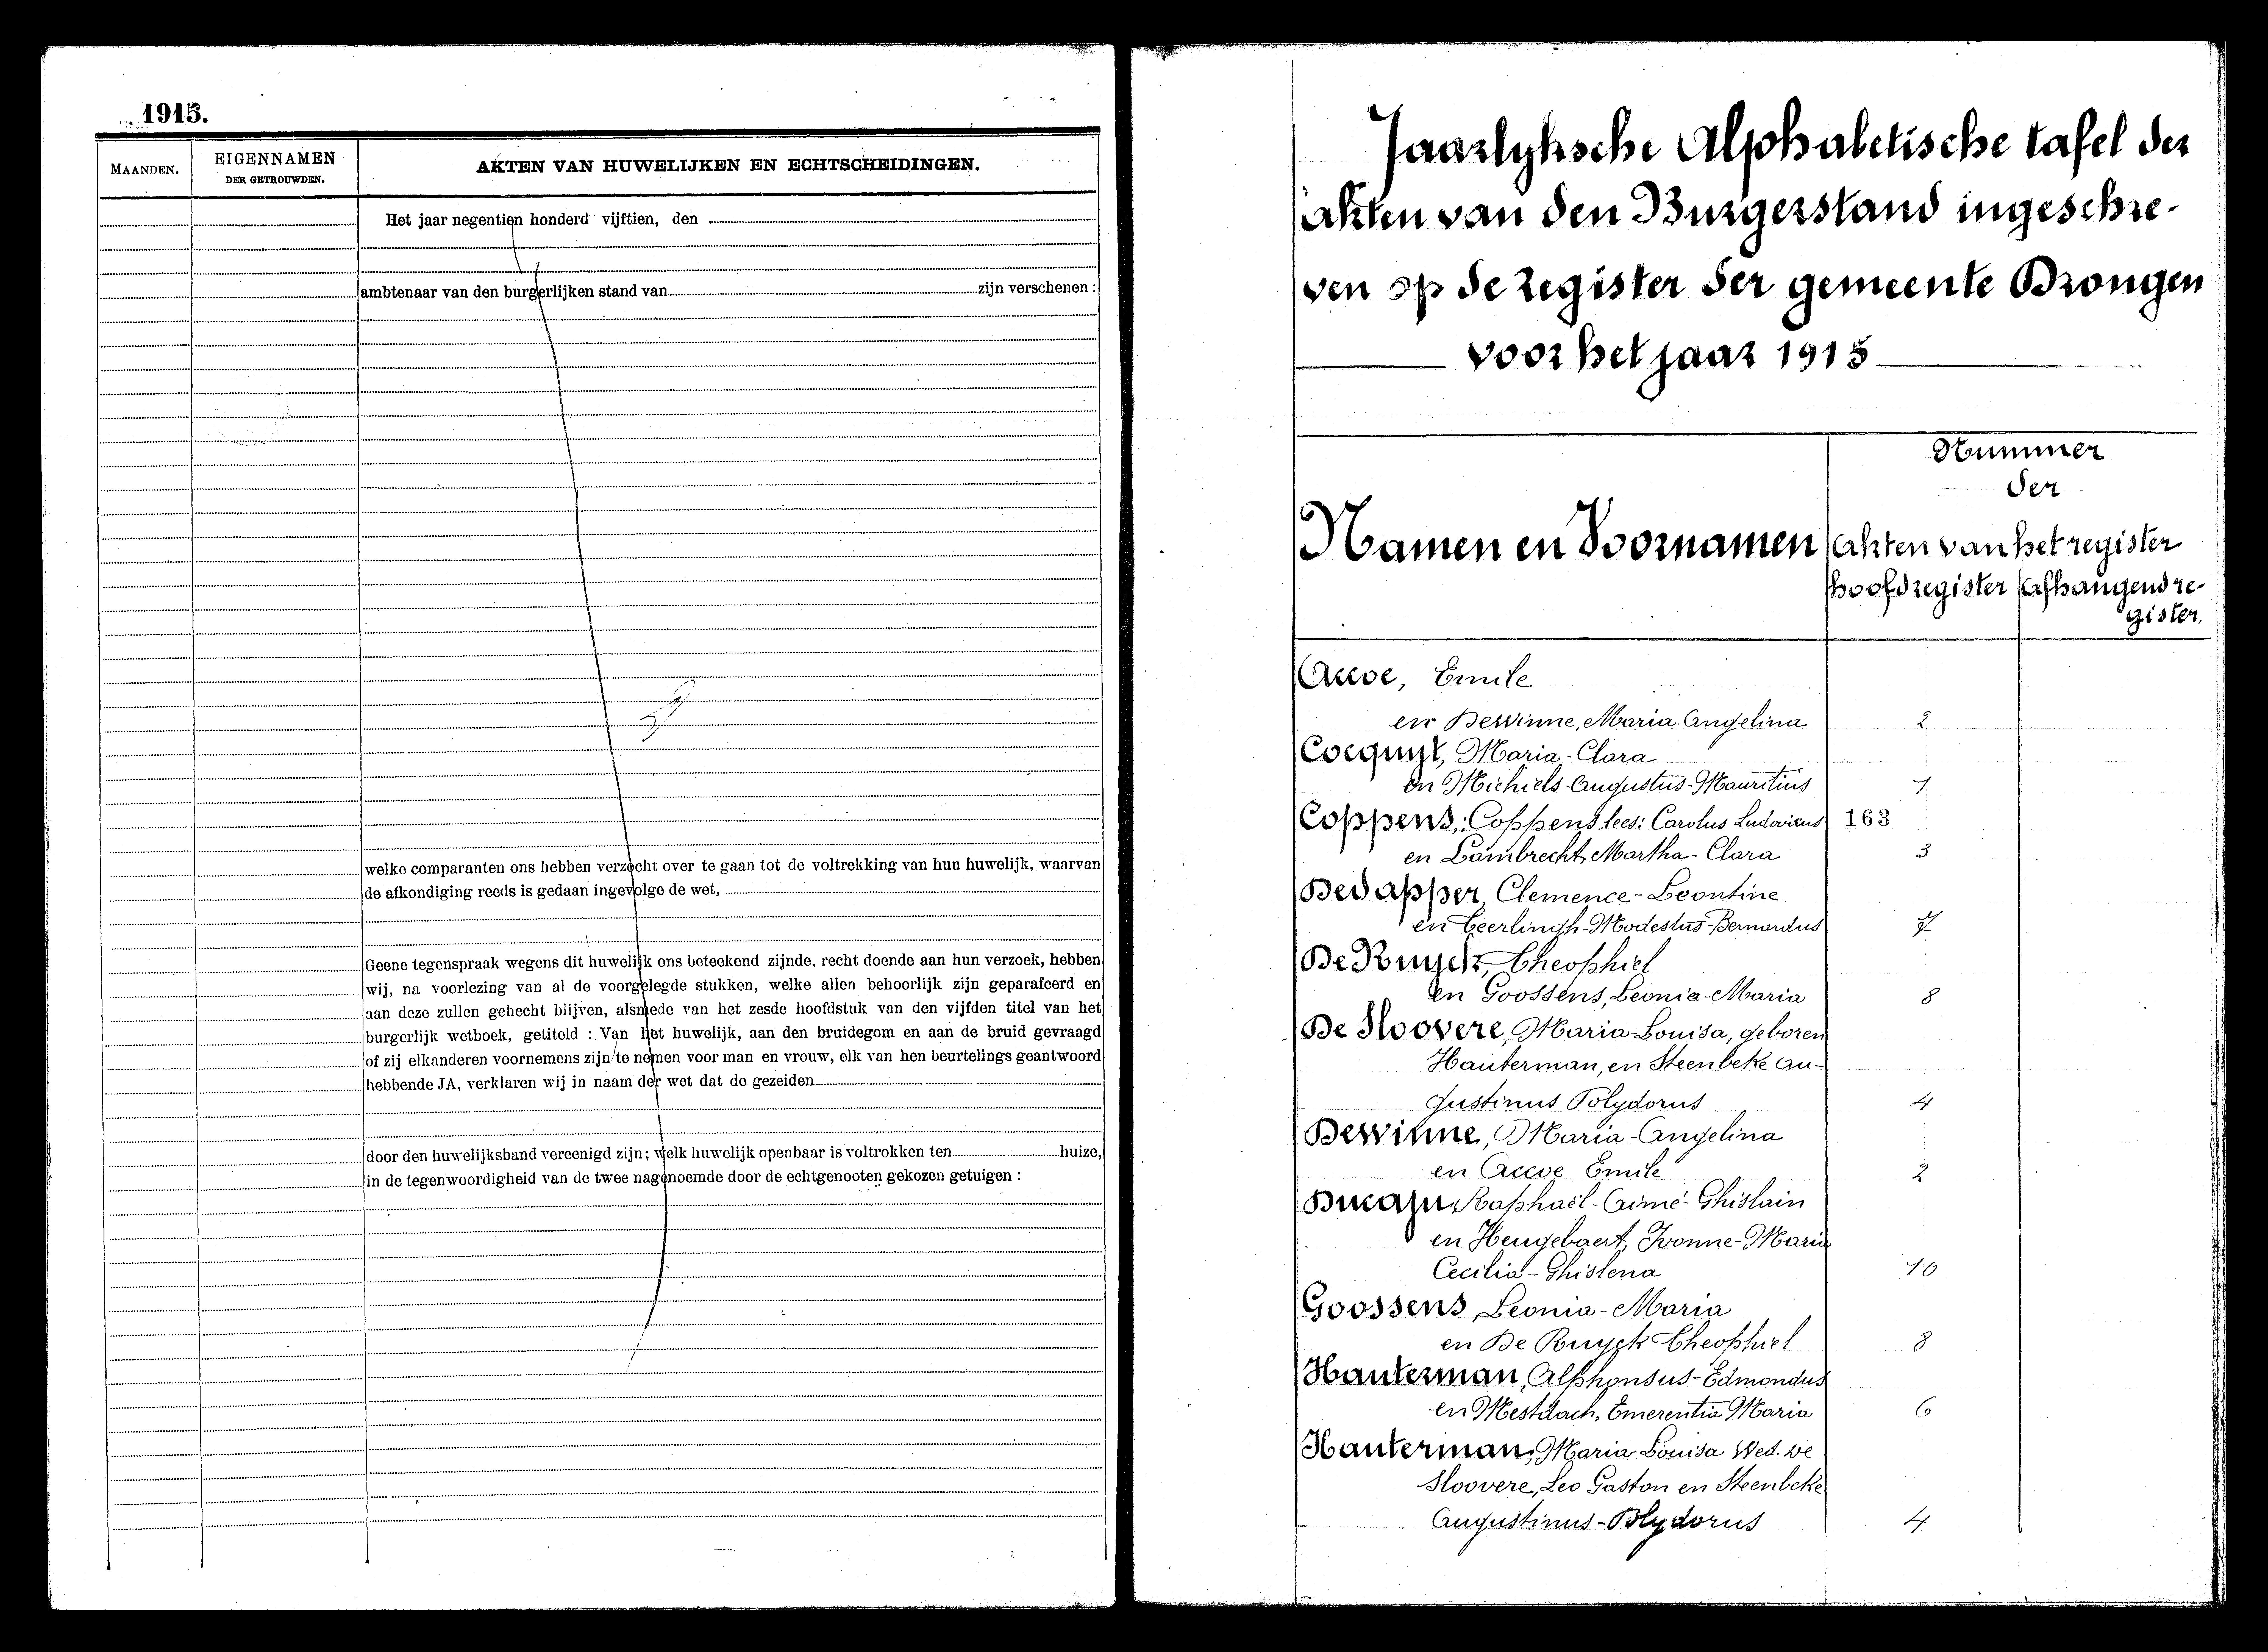 1915.
MAANDEN.
EIGENNAMEN
DER GETROUWDEN.
AKTEN VAN HUWELIJKEN EN ECHTSCHEIDINGEN.
Het jaar negentien honderd vijftien, den
ambtenaar van den burgerlijken stand van zijn verschenen :
welke comparanten ons hebben verzocht over te gaan tot de voltrekking van hun huwelijk, waarvan
de afkondiging reeds is gedaan ingevolge de wet,
Geene tegenspraak wegens dit huwelijk ons beteekend zijnde, recht doende aan hun verzoek, hebben
wij, na voorlezing van al de voorgelegde stukken, welke allen behoorlijk zijn geparafeerd en
aan deze zullen gehecht blijven, alsmede van het zesde hoofdstuk van den vijfden titel van het
burgerlijk wetboek, getiteld : Van het huwelijk, aan den bruidegom en aan de bruid gevraagd
of zij elkanderen voornemens zijn te nemen voor man en vrouw, elk van hen beurtelings geantwoord
hebbende JA, verklaren wij in naam der wet dat de gezeiden
door den huwelijksband vereenigd zijn; welk huwelijk openbaar is voltrokken ten huize,
in de tegenwoordigheid van de twee nagenoemde door de echtgenooten gekozen getuigen :
Jaarlyksche Alphabetische tafel der
Akten van den Burgerstand ingeschre-
ven op de register der gemeente Drongen
voor het jaar 1915
Nummer
der
Namen en Voornamen
Akten van het register
hoofdregister
Afhangend re-
gister.
Accoe, Emile
en Dewinne, Maria Angelina 2
Cocquyt, Maria-Clara
en Michiels-Augustus-Mauritius 1
Coppens,: Coppens lees: Carolus Ludovicus 163
en Lambrecht, Martha-Clara 3
Dedapper, Clemence-Leontine
en Teerlingh-Modestus-Bernardus 7
De Ruyck, Theophiel
en Goossens, Leonia-Maria 8
De Sloovere, Maria-Louisa, geboren
Hauterman, en Steenbeke Au-
gustinus Polydorus 4
Dewinne, Maria-Angelina
en Accoe Emile 2
Ducaju, Raphaël-Aimé-Ghislain
en Heugebaert, Ivonne-Maria
Cecilia-Ghislena 10
Goossens, Leonia-Maria
en De Ruyck Theophiel 8
Hauterman, Alphonsus-Edmondus
en Mestdach, Emerentia Maria 6
Hauterman, Maria Louisa Wed. De
Sloovere, Leo Gaston en Steenbeke
Augustinus-Polydorus 4